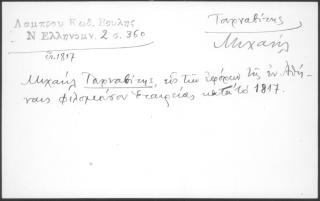 Λαμπρου Κωδ. Βουλης
Ν Ελληνομν. 2 σ. 360
ἐτ. 1817
Ταρναβίτης
Μιχαήλ
Μιχαήλ Ταρναβίτης, εἷς τῶν ἐφόρων τῆς ἐν Ἀθή-
ναις φιλομούσου ἑταιρείας κατὰ τὸ 1817.